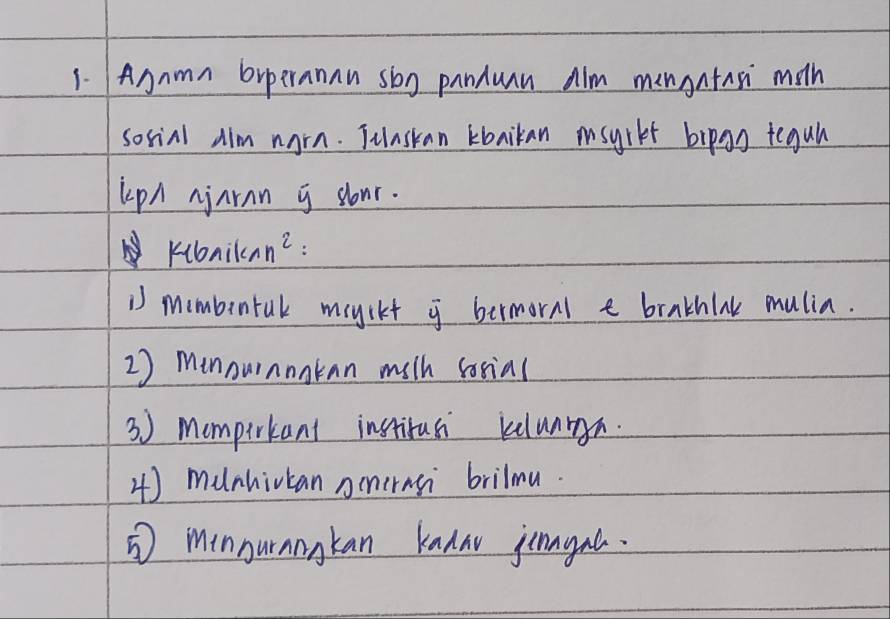 1. Agama brperanan sbg panduan dlm mengatasi mslh
sosial dlm ngra. Jelaskan kbaikan msyrkt brpgg teguh
kpd ajaran ÿ sbnr.
Kebaikan²:
1) Membentuk msyrkt ÿ bermoral & brakhlak mulia.
2) Mengurangkan mslh sosial
3) Memperkant institusi keluarga.
4) Melahirkan generasi brilmu.
5) Mengurangkan kadar jenayah.